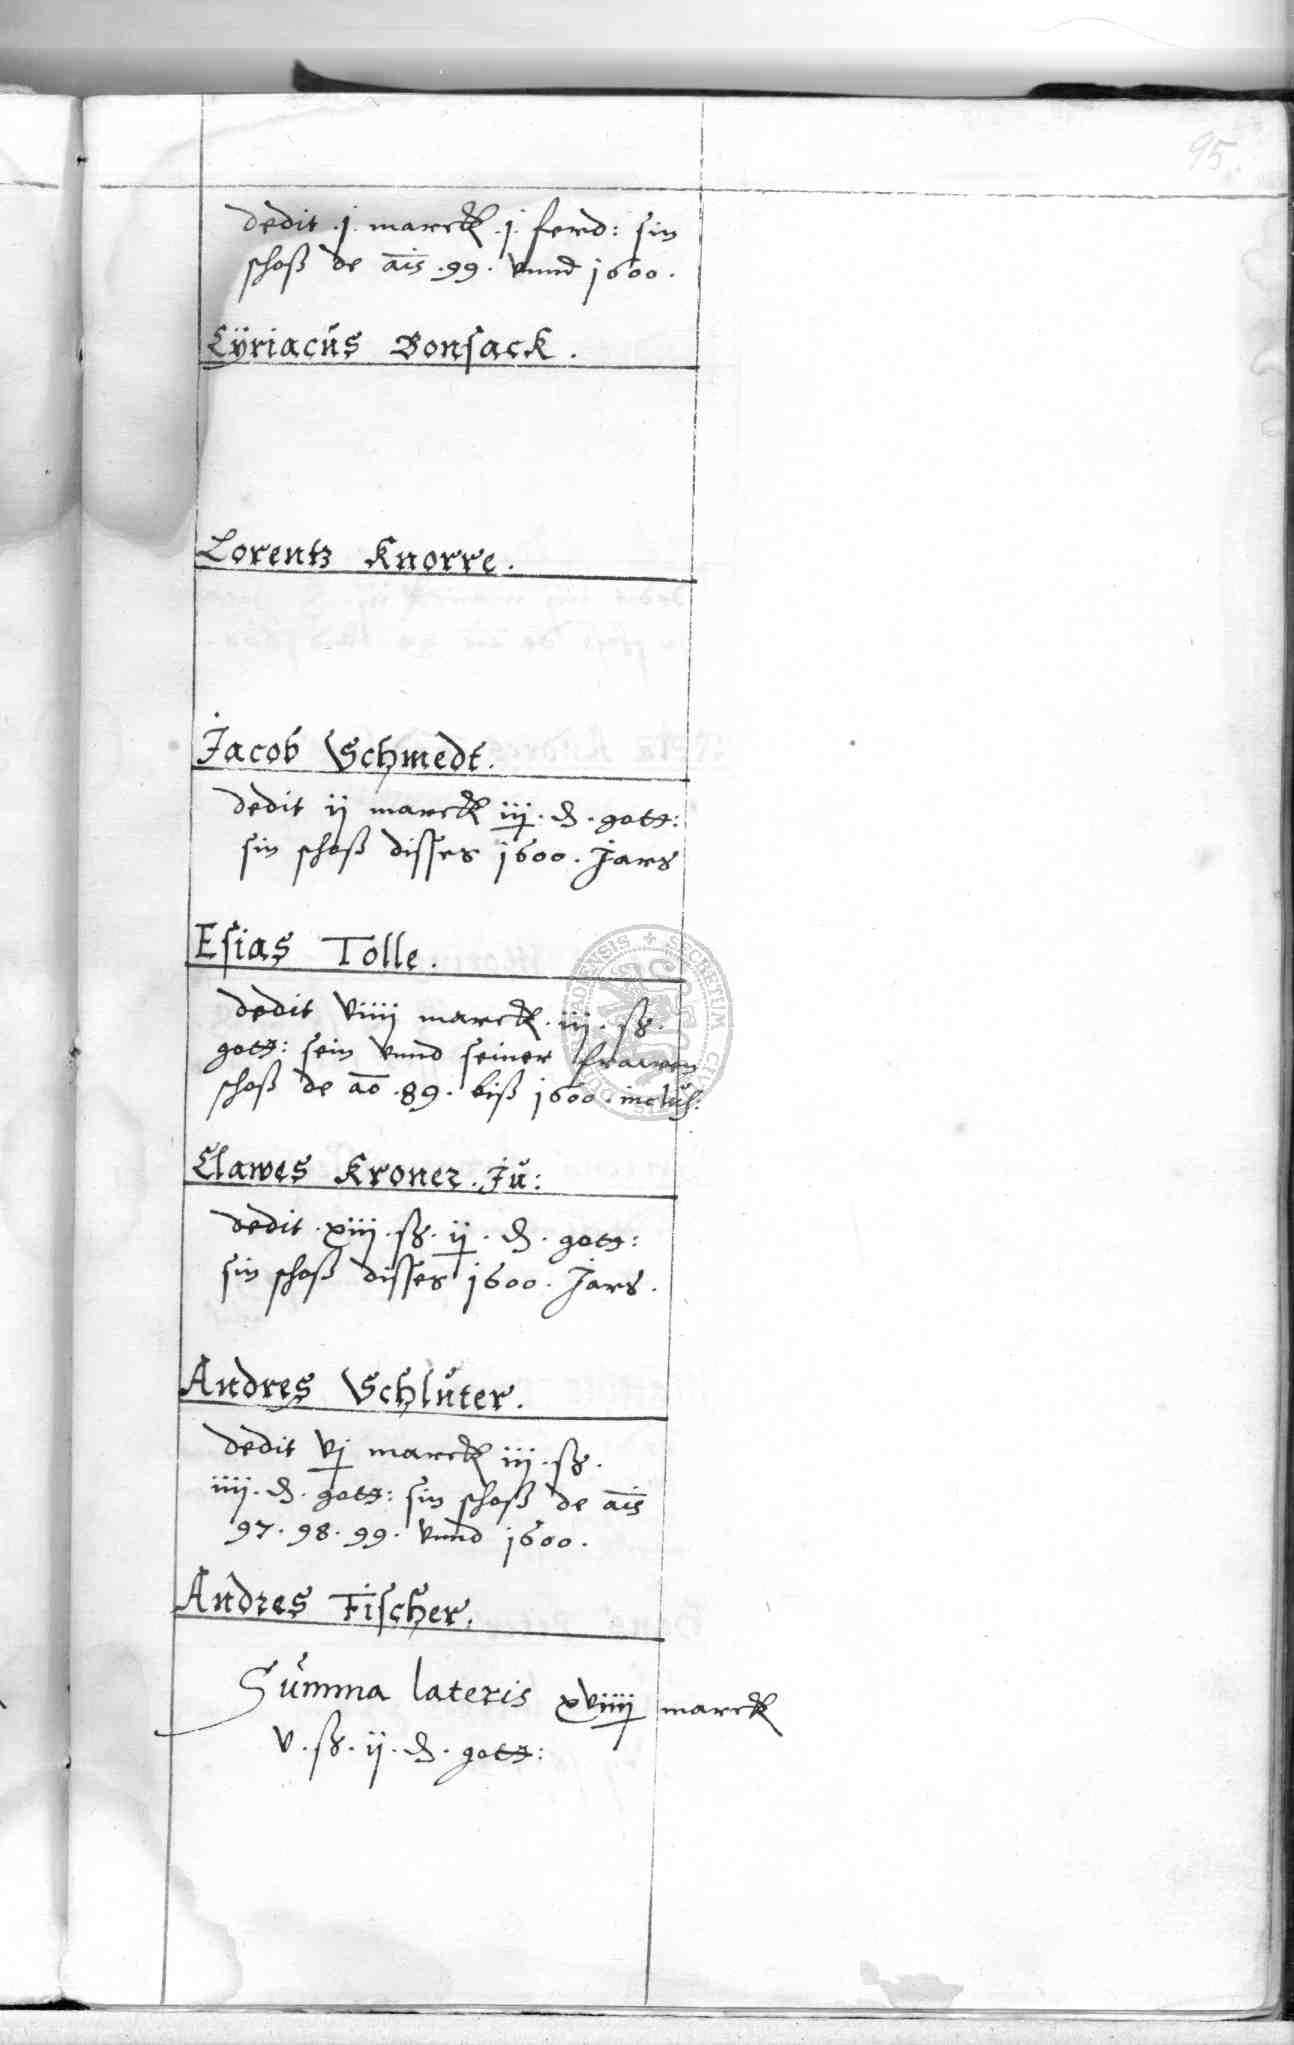 95.
dedit .j. marck .j. ferd: sin
schoß de ais .99. vnnd 1600.
Cÿriacus Bonsack.
Lorentz Knorre.
Jacob Schmedt.
dedit ij marck iij. ₰. gott:
sin schoß disses 1600. Jars
Esias Tolle.
dedit viiij marck. iij. ß.
gott: sein vnnd seiner frawen
schoß de ao .89. biß 1600. inclus:
Clawes Kroner. Ju:
dedit .xiij. ß. ij. ₰. gott:
sin schoß disses 1600. Jars.
Andres Schluter.
dedit vj marck iij. ß.
iiij. ₰. gott: sin schoß de ais
97. 98. 99. vnnd 1600.
Andres Fischer.
Summa lateris xviiij marck
v. ß. ij. ₰. gott:
SECRETUM